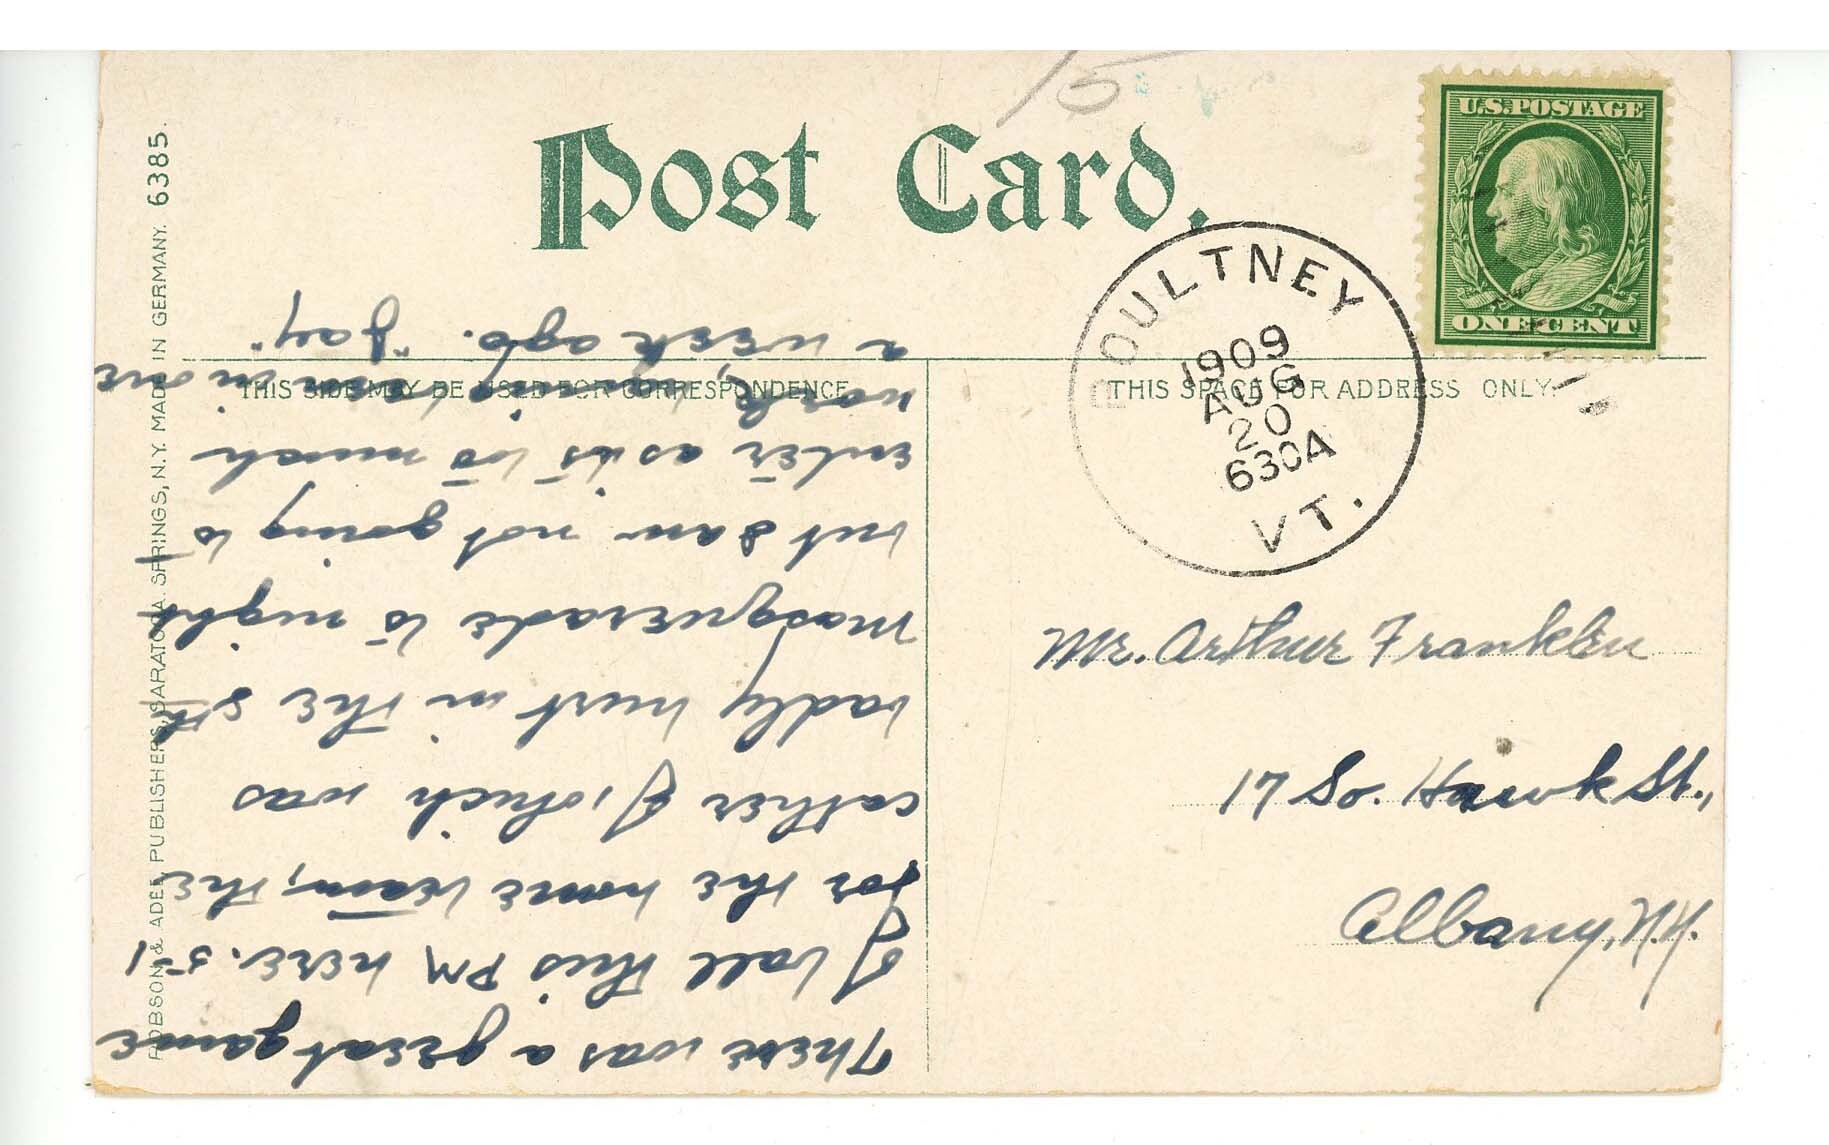 15
Post Card.
U.S. POSTAGE
ONE CENT
POULTNEY
1909
AUG
20
630A
VT.
THIS SIDE MAY BE USED FOR CORRESPONDENCE
THIS SPACE FOR ADDRESS ONLY.
ROBSON & ADEE, PUBLISHERS, SARATOGA SPRINGS, N.Y. MADE IN GERMANY. 6385.
Mr. Arthur Franklin
17 So. Hawk St.,
Albany, N.Y.
There was a great game
of ball this PM here. 5-1
for the home team, the
cather of which was
badly hurt in the 5th
Masquerade to night
but I am not going to
enter as its to much
work, having been in one
a week ago. "Jay"